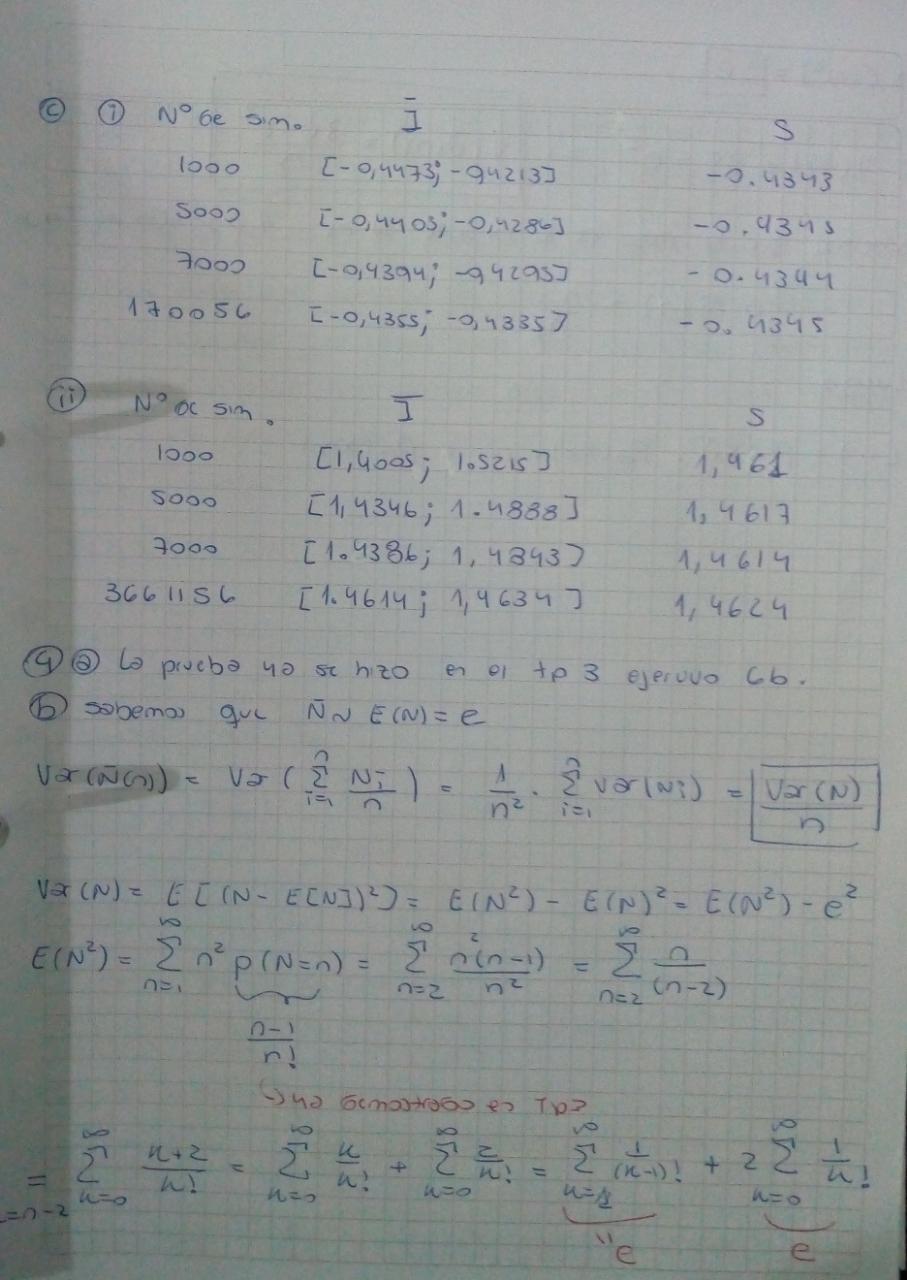 ⓒ ⓘ Nº de sim. Ī S
1000 [-0,4473; -0,4213] -0.4343
5000 [-0,4403; -0,4286] -0.4345
7000 [-0,4394; -0,4295] -0.4344
170056 [-0,4355; -0,4335] -0.4345
ⓘⓘ Nº de sim. Ī S
1000 [1,4005; 1.5215] 1,461
5000 [1,4346; 1.4888] 1,4617
7000 [1.4386; 1,4843] 1,4614
3661156 [1.4614; 1,4634] 1,4624
④ ⓐ La prueba ya se hizo en el tp 3 ejercicio 6b.
ⓑ sabemos que N̄ ~ E(N) = e
Var(N̄(n)) = Var(∑_{i=1}^{n} Ni/n) = 1/n² · ∑_{i=1}^{n} Var(Ni) = Var(N)/n
Var(N) = E[(N - E[N])²] = E(N²) - E(N)² = E(N²) - e²
E(N²) = ∑_{n=1}^{∞} n² p(N=n) = ∑_{n=2}^{∞} n²(n-1)/n² = ∑_{n=2}^{∞} n/(n-2)
n-1/n!
= ∑_{k=0}^{∞} k+2/k! = ∑_{k=0}^{∞} k/k! + ∑_{k=0}^{∞} 2/k! = ∑_{k=1}^{∞} 1/(k-1)! + 2 ∑_{k=0}^{∞} 1/k!
=n-2
"e e